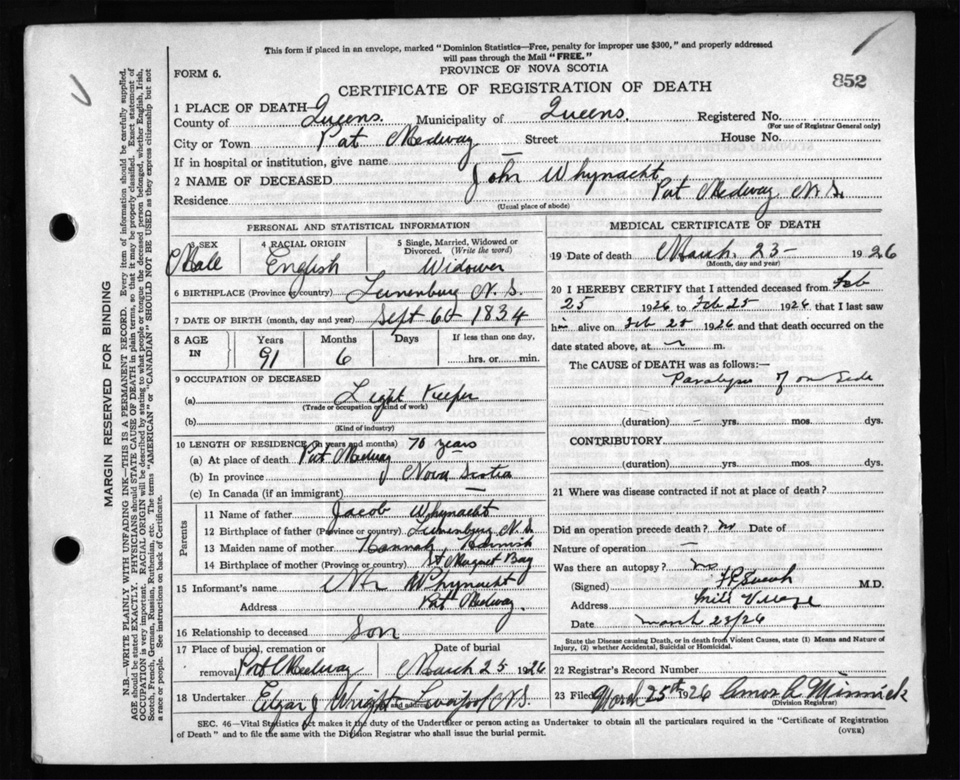 This form if placed in an envelope, marked "Dominion Statistics—Free, penalty for improper use $300," and properly addressed
will pass through the Mail "FREE."
PROVINCE OF NOVA SCOTIA
FORM 6.
CERTIFICATE OF REGISTRATION OF DEATH
852
1 PLACE OF DEATH
County of Queens. Municipality of Queens. Registered No.
(For use of Registrar General only)
City or Town Port Medway Street — House No.
If in hospital or institution, give name
2 NAME OF DECEASED John Whynacht
Residence Port Medway N.S.
(Usual place of abode)
PERSONAL AND STATISTICAL INFORMATION
3 SEX Male
4 RACIAL ORIGIN English
5 Single, Married, Widowed or Divorced. (Write the word) Widower
6 BIRTHPLACE (Province or country) Lunenburg N.S.
7 DATE OF BIRTH (month, day and year) Sept 6th 1834
8 AGE IN Years 91 Months 6 Days If less than one day, hrs. or min.
9 OCCUPATION OF DECEASED
(a) Light Keeper
(Trade or occupation or kind of work)
(b)
(Kind of industry)
10 LENGTH OF RESIDENCE (in years and months) 70 years
(a) At place of death Port Medway
(b) In province Nova Scotia
(c) In Canada (if an immigrant) —
Parents
11 Name of father Jacob Whynacht
12 Birthplace of father (Province or country) Lunenburg N.S.
13 Maiden name of mother Hannah
14 Birthplace of mother (Province or country) St Margaret Bay
15 Informant's name Whynacht
Address Port Medway.
16 Relationship to deceased Son
17 Place of burial, cremation or removal Port Medway
Date of burial March 25 1926
18 Undertaker Edgar J Wright N.S.
and address
MEDICAL CERTIFICATE OF DEATH
19 Date of death March 23— 1926
(Month, day and year)
20 I HEREBY CERTIFY that I attended deceased from Feb
25 1926 to Feb 25 1926 that I last saw
him alive on Feb 25 1926 and that death occurred on the
date stated above, at m.
The CAUSE OF DEATH was as follows:
Paralysis of one Side
(duration) — yrs. mos. dys.
CONTRIBUTORY
(duration) yrs. mos. dys.
21 Where was disease contracted if not at place of death?
Did an operation precede death? no Date of
Nature of operation —
Was there an autopsy? no
(Signed) M.D.
Address Mill Village
Date March 23/26
State the Disease causing Death, or in death from Violent Causes, state (1) Means and Nature of
Injury, (2) whether Accidental, Suicidal or Homicidal.
22 Registrar's Record Number
23 Filed March 25th 1926 Amos A Minnick
(Division Registrar)
SEC. 46—Vital Statistics Act makes it the duty of the Undertaker or person acting as Undertaker to obtain all the particulars required in the "Certificate of Registration
of Death" and to file the same with the Division Registrar who shall issue the burial permit.
(OVER)
MARGIN RESERVED FOR BINDING
N.B.—WRITE PLAINLY WITH UNFADING INK—THIS IS A PERMANENT RECORD. Every item of information should be carefully supplied.
AGE should be stated EXACTLY. PHYSICIANS should STATE CAUSE OF DEATH in plain terms, so that it may be properly classified. Exact statement of
OCCUPATION is very important. RACIAL ORIGIN will be described by stating to what people or tongue the deceased person belonged, whether English, Irish,
Scotch, French, German, Russian, Ruthenian, etc. The terms "AMERICAN" or "CANADIAN" SHOULD NOT BE USED as they express citizenship but not
a race or people. See instructions on back of Certificate.